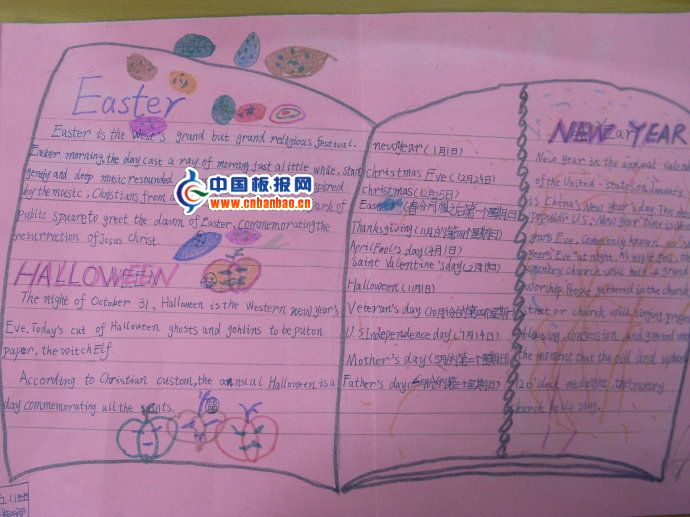 Easter
Easter is the West's grand but grand religious festival.
Easter morning, the day cast a ray of morning just a little while, start
gently and deep music resounded
by the music, Christians from ark of
public square to greet the dawn of Easter, commemorating the
resurrection of Jesus Christ.
中国板报网
www.cnbanbao.cn
HALLOWEEN
The night of October 31, Halloween is the Western new year's
Eve. Today's cut of Halloween ghosts and goblins to be put on
paper, the witch Elf.
According to Christian custom, the annual Halloween is a
day commemorating all the saints.
newyear (1月1日)
Christmas Eve. (12月24日)
christmas (12月25日)
Easter (春分月圆之后第一个星期日)
Thanksgiving (11月的第四个星期四)
April Fool's day (4月1日)
Saint Valentine's day (2月14日)
Halloween (11月1日)
Veteran's day (10月份的第四个星期
U.S Independence day (7月14日)
Mother's day (5月的第二个星期日)
Father's day (6月份的第三个星期日)
NEW YEAR
New year in the annual calend
of the United-states on January
is China's New Year's day. The most
popular U.S. New Year time is Ne
year's Eve, Commonly known as "N
Year's Eve" at night. As night fell, the
country church will hold a grand
worship. People gathered in the church
street or church will singing, pray
blessing, confession, and
the moment that the old and
12 o'clock midnight, the country
church bells sing.